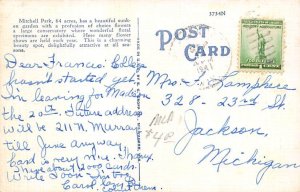 Mitchell Park, 64 acres, has a beautiful sunk-
en garden with a profusion of choice flowers
a large conservatory where wonderful floral
specimens are exhibited. Here many flower
shows are held each year. This is a charming
beauty spot, delightfully attractive at all sea-
sons.
3734N
POST
CARD
Dear Francis: Ellen
hasn't started yet.
Im leaving for Madison
the 20th. Future address
will be 211 N. Murray
till June anyway.
Card is very nice. Thanx.
I have about 2000 cards.
Write soon
Carol
Mrs. F. Lamphire
328 - 23rd St
Jackson,
Michigan